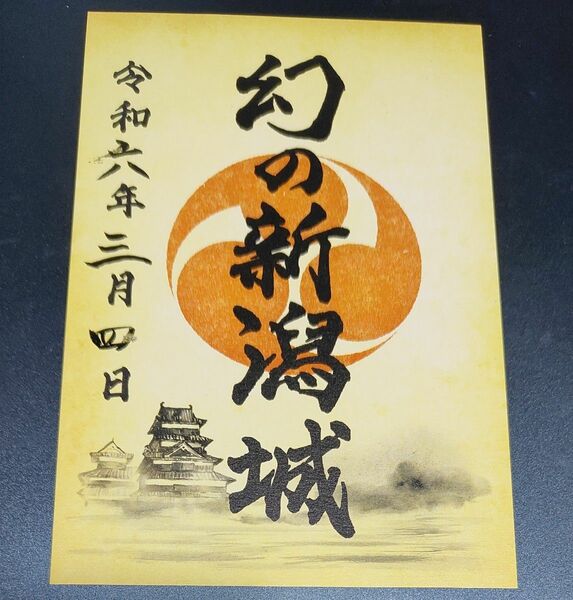 幻の新潟城
令和六年三月四日